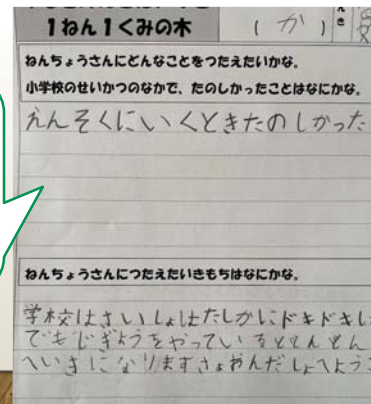 1ねん1くみの木
( か )
ねんちょうさんにどんなことをつたえたいかな。
小学校のせいかつのなかで、たのしかったことはなにかな。
えんそくにいくときたのしかった
ねんちょうさんにつたえたいきもちはなにかな。
学校はさいしょはたしかにドキドキし
でもじぎょうをやっているとどんどん
へいきになりますさぁおんだしょへようこ